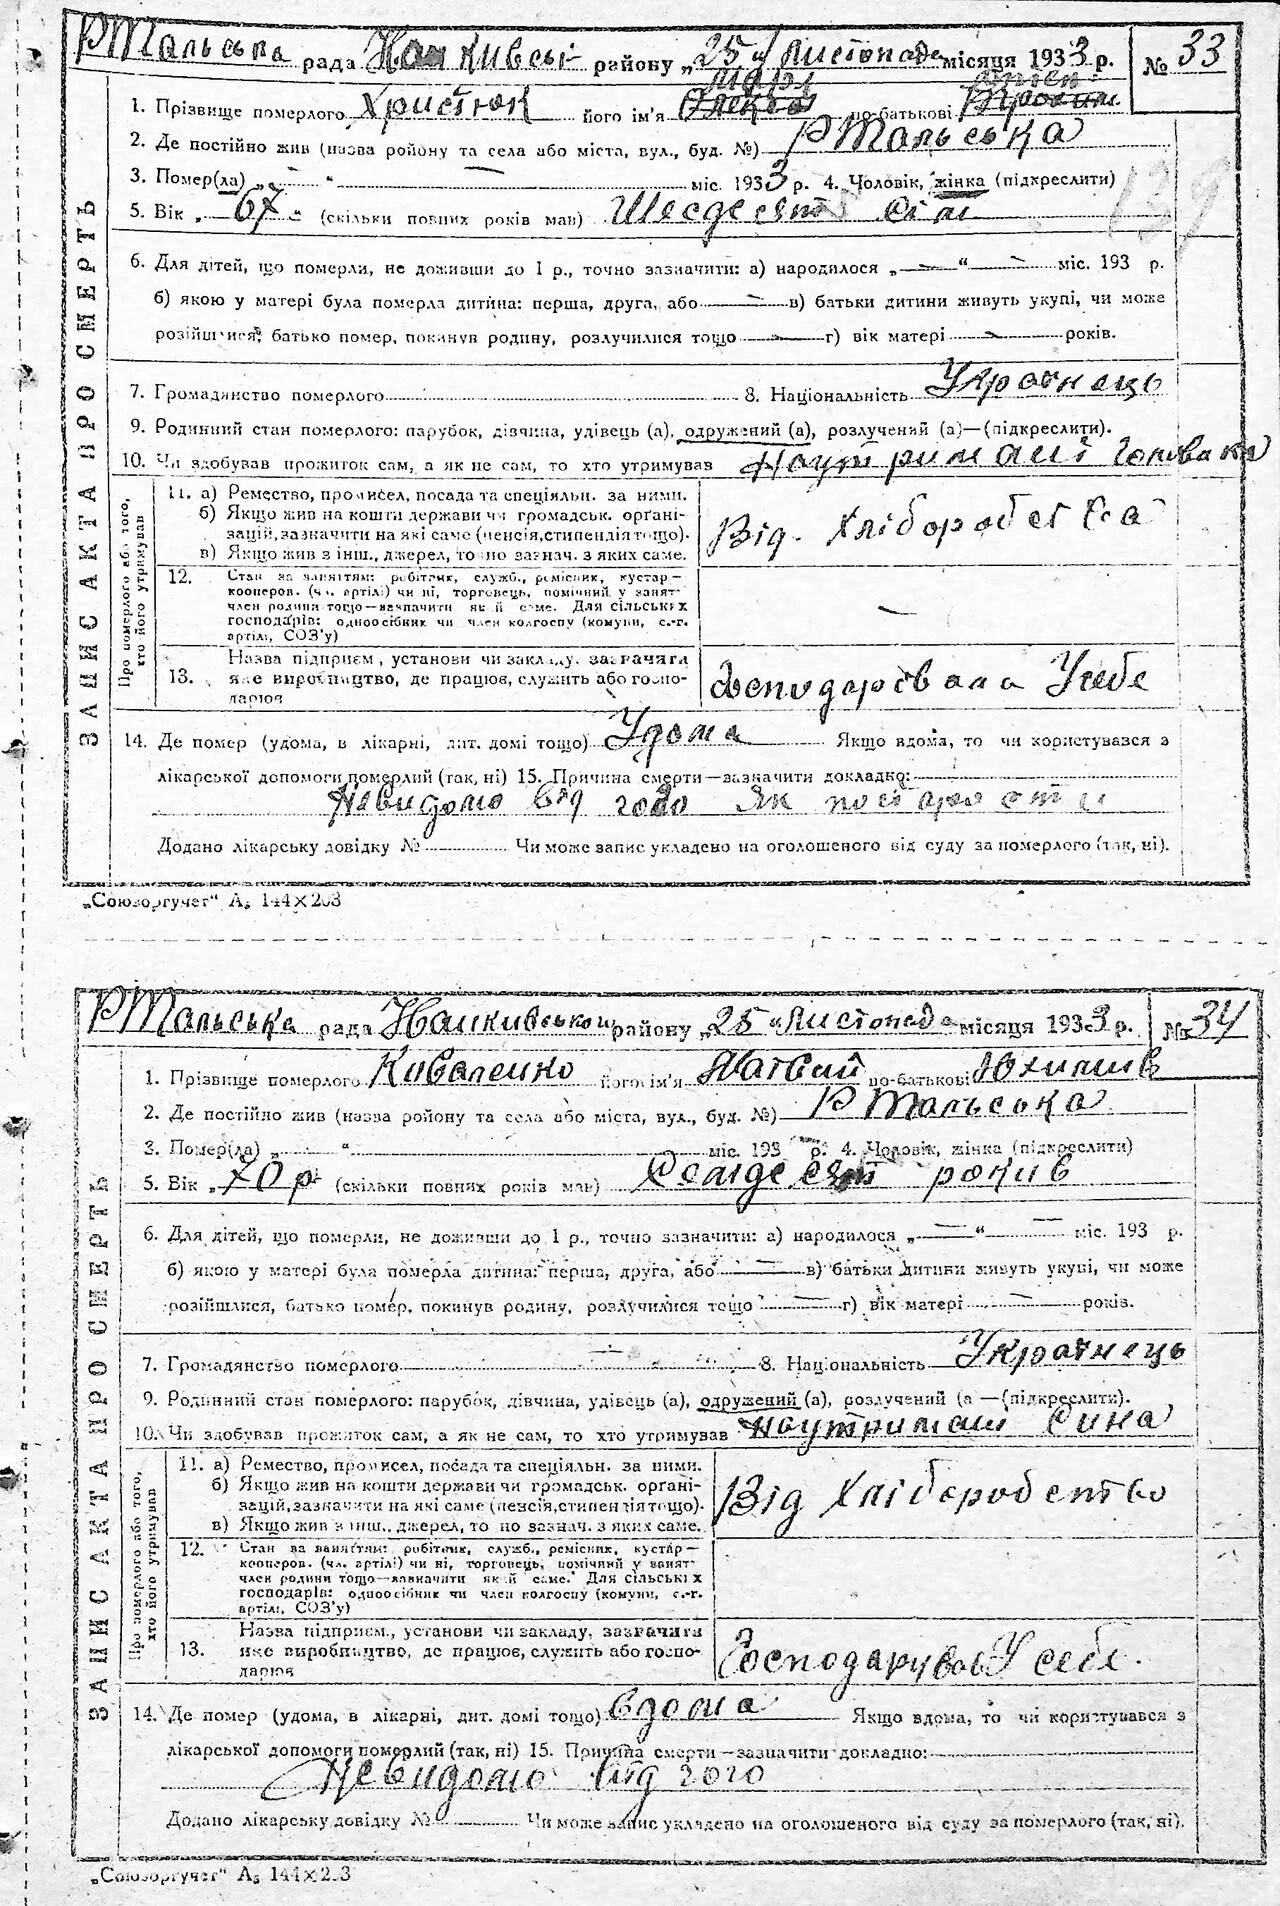 РТальська рада Нанківські району „25“ Листопада місяця 1933 р. № 33
1. Прізвище померлого Христюк його ім'я по-батькові
2. Де постійно жив (назва району та села або міста, вул., буд. №) РТальська
3. Помер(ла) „ — “ — міс. 1933 р. 4. Чоловік, жінка (підкреслити)
139
5. Вік „ 67 “ (скільки повних років мав) Шесдесят сім
6. Для дітей, що померли, не доживши до 1 р., точно зазначити: а) народилося „ — “ — міс. 193 р.
б) якою у матері була померла дитина: перша, друга, або — в) батьки дитини живуть укупі, чи може
розійшлися, батько помер, покинув родину, розлучилися тощо — г) вік матері — років.
7. Громадянство померлого 8. Національність Украінець
9. Родинний стан померлого: парубок, дівчина, удівець (а), одружений (а), розлучений (а)—(підкреслити).
10. Чи здобував прожиток сам, а як не сам, то хто утримував Наутримані чоловіка
Про померлого або того, хто його утримував
11. а) Ремество, промисел, посада та спеціяльн. за ними.
б) Якщо жив на кошти держави чи громадськ. органі-
зацій, зазначити на які саме (пенсія, стипендія тощо).
в) Якщо жив з інш., джерел, точно зазнач. з яких саме.
Від. Хліборобства
12. Стан за заняттям: робітник, служб., ремісник, кустар—
кооперов. (чл. артілі) чи ні, торговець, помічний у занят
член родини тощо—зазначити який саме. Для сільських
господарів: одноосібник чи член колгоспу (комуни, с.-г.
артілі, СОЗ'у) —
13. Назва підприєм., установи чи закладу, зазначити
яке виробництво, де працює, служить або госпо-
дарює
Господарювала Усебе
14. Де помер (удома, в лікарні, дит. домі тощо) Удома Якщо вдома, то чи користувався з
лікарської допомоги померлий (так, ні) 15. Причина смерти—зазначити докладно:
Невидомо від чого як постарости
Додано лікарську довідку № Чи може запис укладено на оголошеного від суду за померлого (так, ні).
ЗАПИС АКТА ПРО СМЕРТЬ
„Союзоргучет“ А₅ 144×203
РТальська рада Нанкивськои району „25“ Листопада місяця 1933 р. № 34
1. Прізвище померлого Коваленко його ім'я Матвий по-батькові Юхимив
2. Де постійно жив (назва району та села або міста, вул., буд. №) РТальська
3. Помер(ла) „ “ міс. 193 р. 4. Чоловік, жінка (підкреслити)
5. Вік „ 70 р “ (скільки повних років мав) Семдесят рокив
6. Для дітей, що померли, не доживши до 1 р., точно зазначити: а) народилося „ — “ — міс. 193 р.
б) якою у матері була померла дитина: перша, друга, або — в) батьки дитини живуть укупі, чи може
розійшлися, батько помер, покинув родину, розлучилися тощо — г) вік матері — років.
7. Громадянство померлого 8. Національність Украінець
9. Родинний стан померлого: парубок, дівчина, удівець (а), одружений (а), розлучений (а —(підкреслити).
10. Чи здобував прожиток сам, а як не сам, то хто утримував Наутримані сина
Про померлого або того, хто його утримував
11. а) Ремество, промисел, посада та спеціяльн. за ними.
б) Якщо жив на кошти держави чи громадськ. органі-
зацій, зазначити на які саме (пенсія, стипендія тощо).
в) Якщо жив з інш., джерел, точно зазнач. з яких саме.
Від Хліборобство
12. Стан за заняттям: робітник, служб., ремісник, кустар—
кооперов. (чл. артілі) чи ні, торговець, помічний у занят
член родини тощо—зазначити який саме. Для сільських
господарів: одноосібник чи член колгоспу (комуни, с.-г.
артілі, СОЗ'у)
13. Назва підприєм., установи чи закладу, зазначити
яке виробництво, де працює, служить або госпо-
дарює
Господарував У себе.
14. Де помер (удома, в лікарні, дит. домі тощо) вдома Якщо вдома, то чи користувався з
лікарської допомоги померлий (так, ні) 15. Причина смерти—зазначити докладно:
Невидомо від чого
Додано лікарську довідку № Чи може запис укладено на оголошеного від суду за померлого (так, ні).
ЗАПИС АКТА ПРО СМЕРТЬ
„Союзоргучет“ А₅ 144×203